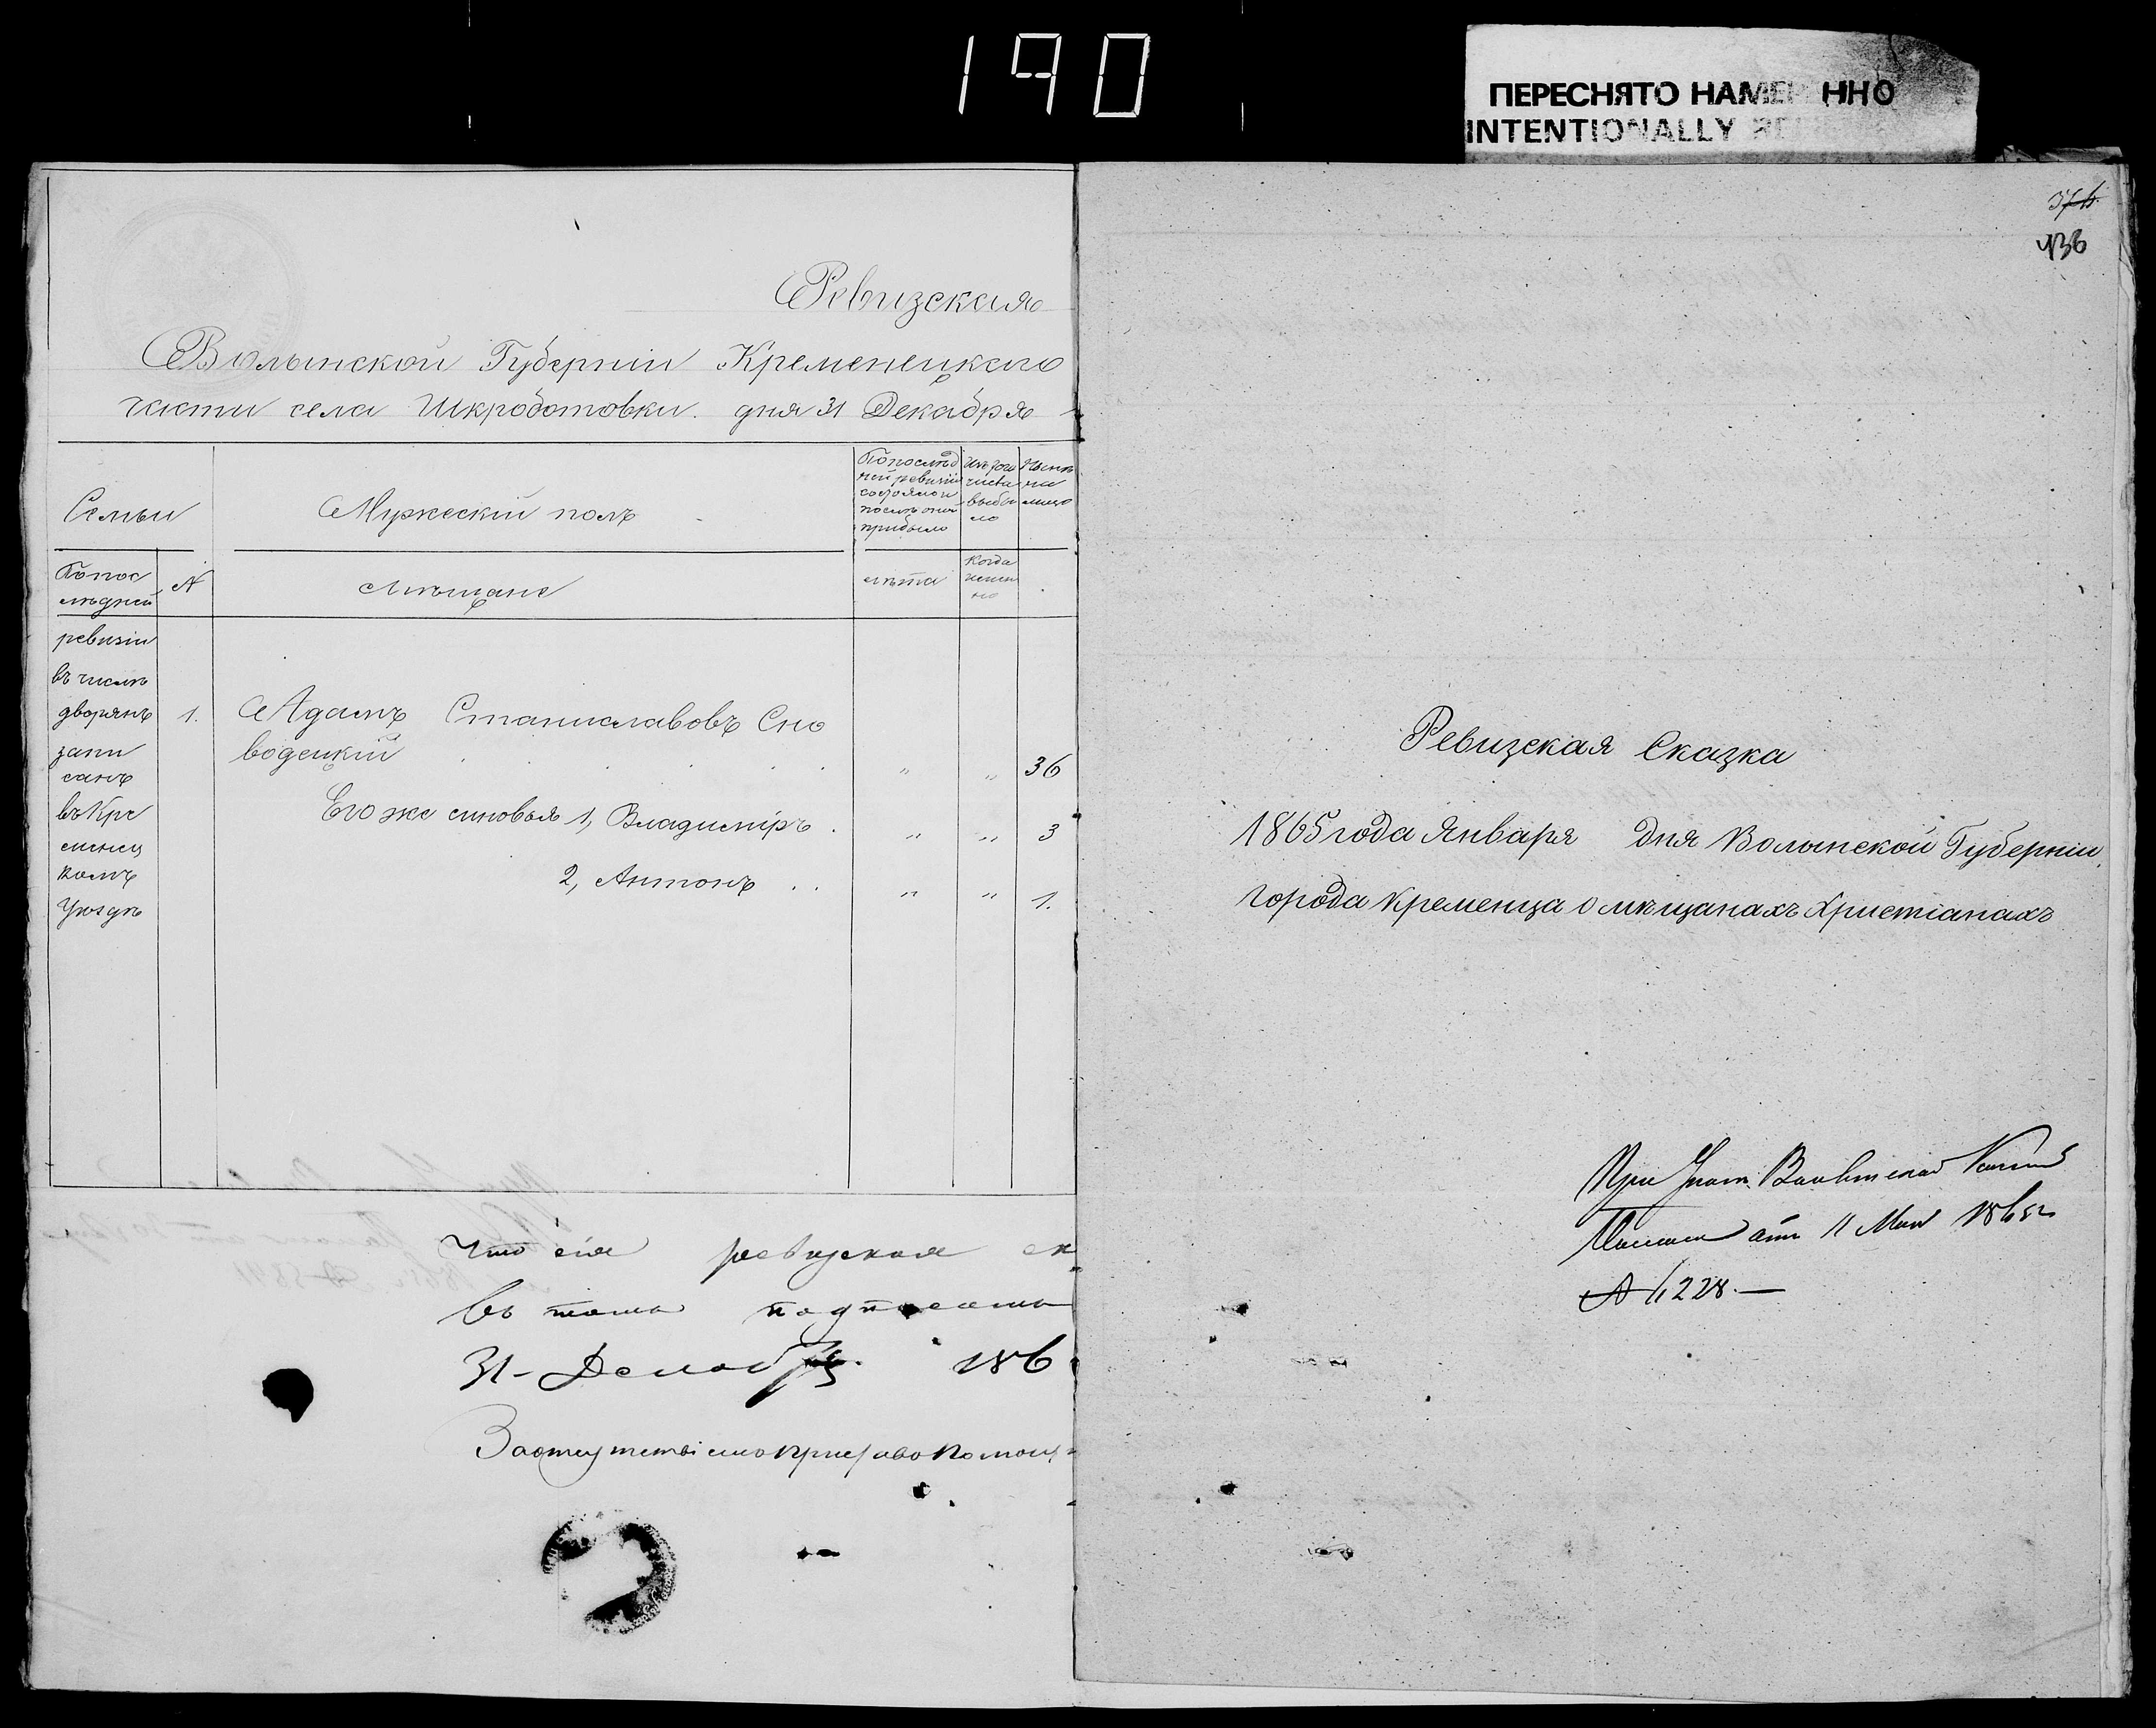 190
ПЕРЕСНЯТО НАМЕРЕННО
INTENTIONALLY
Ревизская
Волынской Губерніи Кременецкаго
части села Шкроботовки. дня 31 Декабря
Семьи
Мужескій полъ
По послѣд
ней ревизіи
состояло и
послѣ оной
прибыло
Изъ того
числа
выбы
ло
Нынѣ
на
лицо
По пос
лѣдней
№
Мѣщане
лѣта
Когда
имен
но
ревизіи
въ числѣ
дворянъ
запи
санъ
въ Кре
менец
комъ
Уѣздѣ
1. Адамъ Станиславовъ Сно
водецкій . . . . . " " 36
Его же сыновья 1, Владиміръ . " " 3
2, Антонъ . . " " 1.
Что сія ревизская ск
въ томъ подписомъ
31 - Декабря 186
376
436
Ревизская Сказка
1865 года Января дня Волынской Губерніи
города Кременца о мѣщанахъ Христіанахъ
При Волынской
отъ 11 Мая 1865 г
№ 4228.—